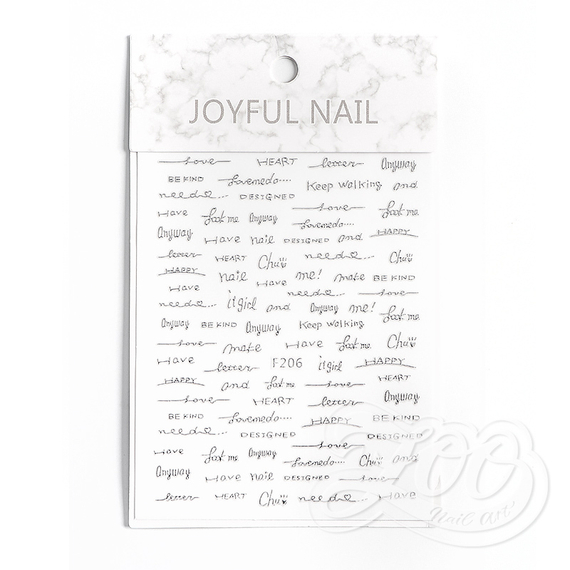 JOYFUL NAIL
Love HEART letter Anyway
BE KIND Lovemedo.... Keep Walking and
need♡... DESIGNED
Have Look me. Anyway Love Look me.
Lovemedo....
Anyway Have nail DESIGNED and HAPPY
letter HEART Chu need♡... Chu
HAPPY nail me! make BE KIND
Have
need♡... Love
need♡... itgirl and Anyway me! Look me.
Anyway BE KIND Anyway Keep Walking
Love make Have Look me. Chu
Have letter F206 itgirl HAPPY
HAPPY and Look me. Love HEART
Love HEART letter Anyway
BE KIND Lovemedo.... HAPPY BE KIND
need♡... DESIGNED DESIGNED
Love
Have Look me. Anyway Lovemedo.... Chu and
Anyway Have nail DESIGNED Have
letter HEART Chu need♡... Have
ZOO
Nail Art